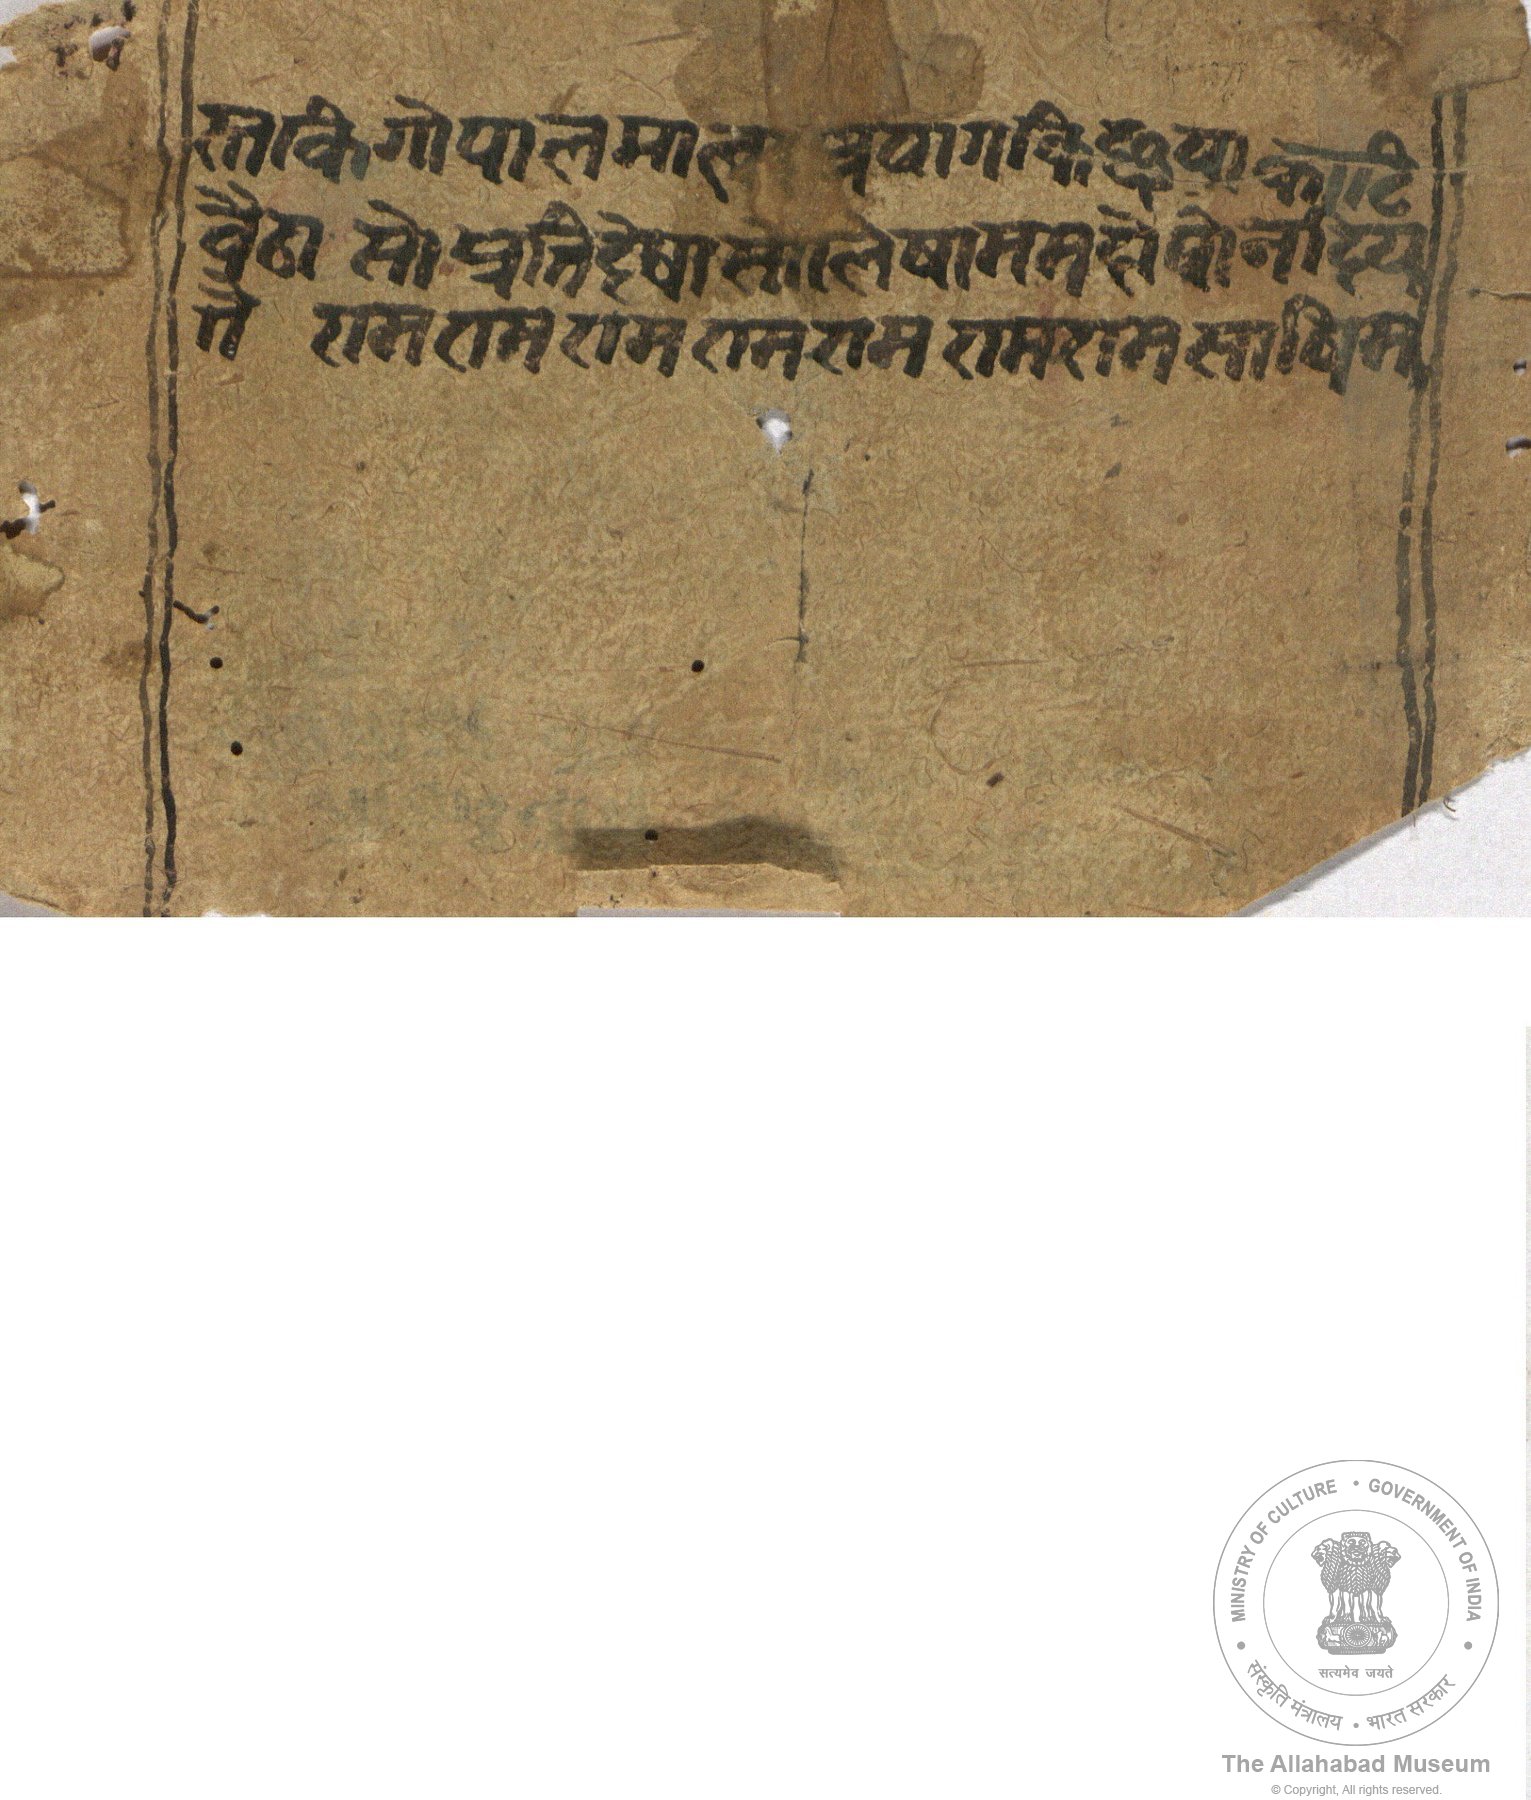 स्तकि गोपाल माल प्रयाग कि
बैठा सो प्रति देषा सा लेषा मम दोष
मै राम राम राम राम राम राम राम साषिम
MINISTRY OF CULTURE • GOVERNMENT OF INDIA
सत्यमेव जयते
संस्कृति मंत्रालय • भारत सरकार
The Allahabad Museum
© Copyright, All rights reserved.